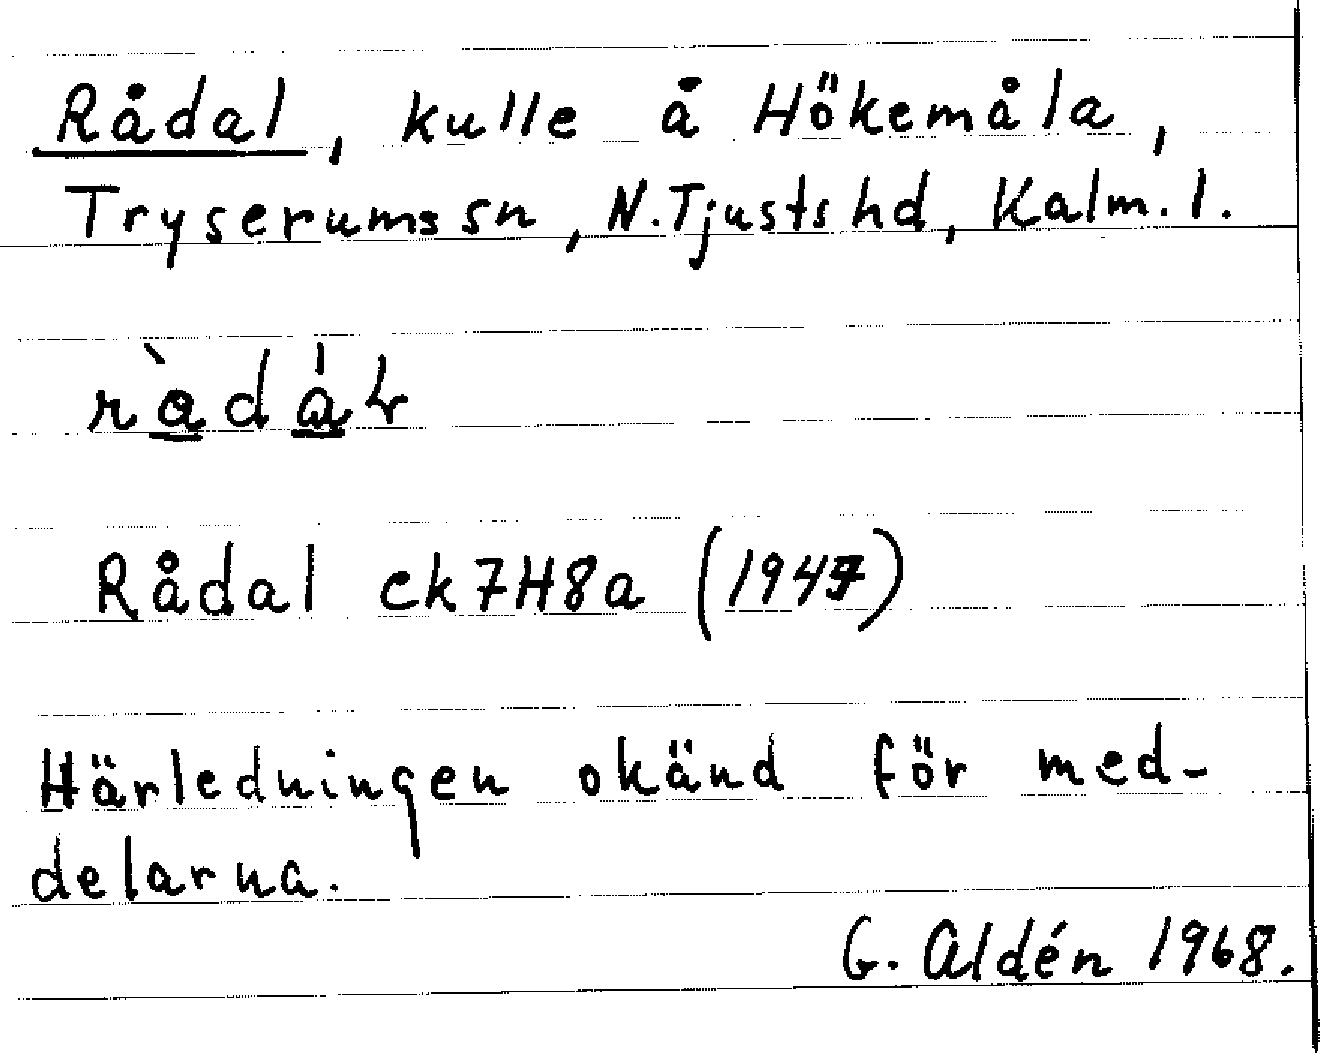 Rådal, kulle å Hökemåla,
Tryserums sn, N. Tjusts hd, Kalm. l.
Rådal ek 7H8a (1947)
Härledningen okänd för med-
delarna.
G. Aldén 1968.